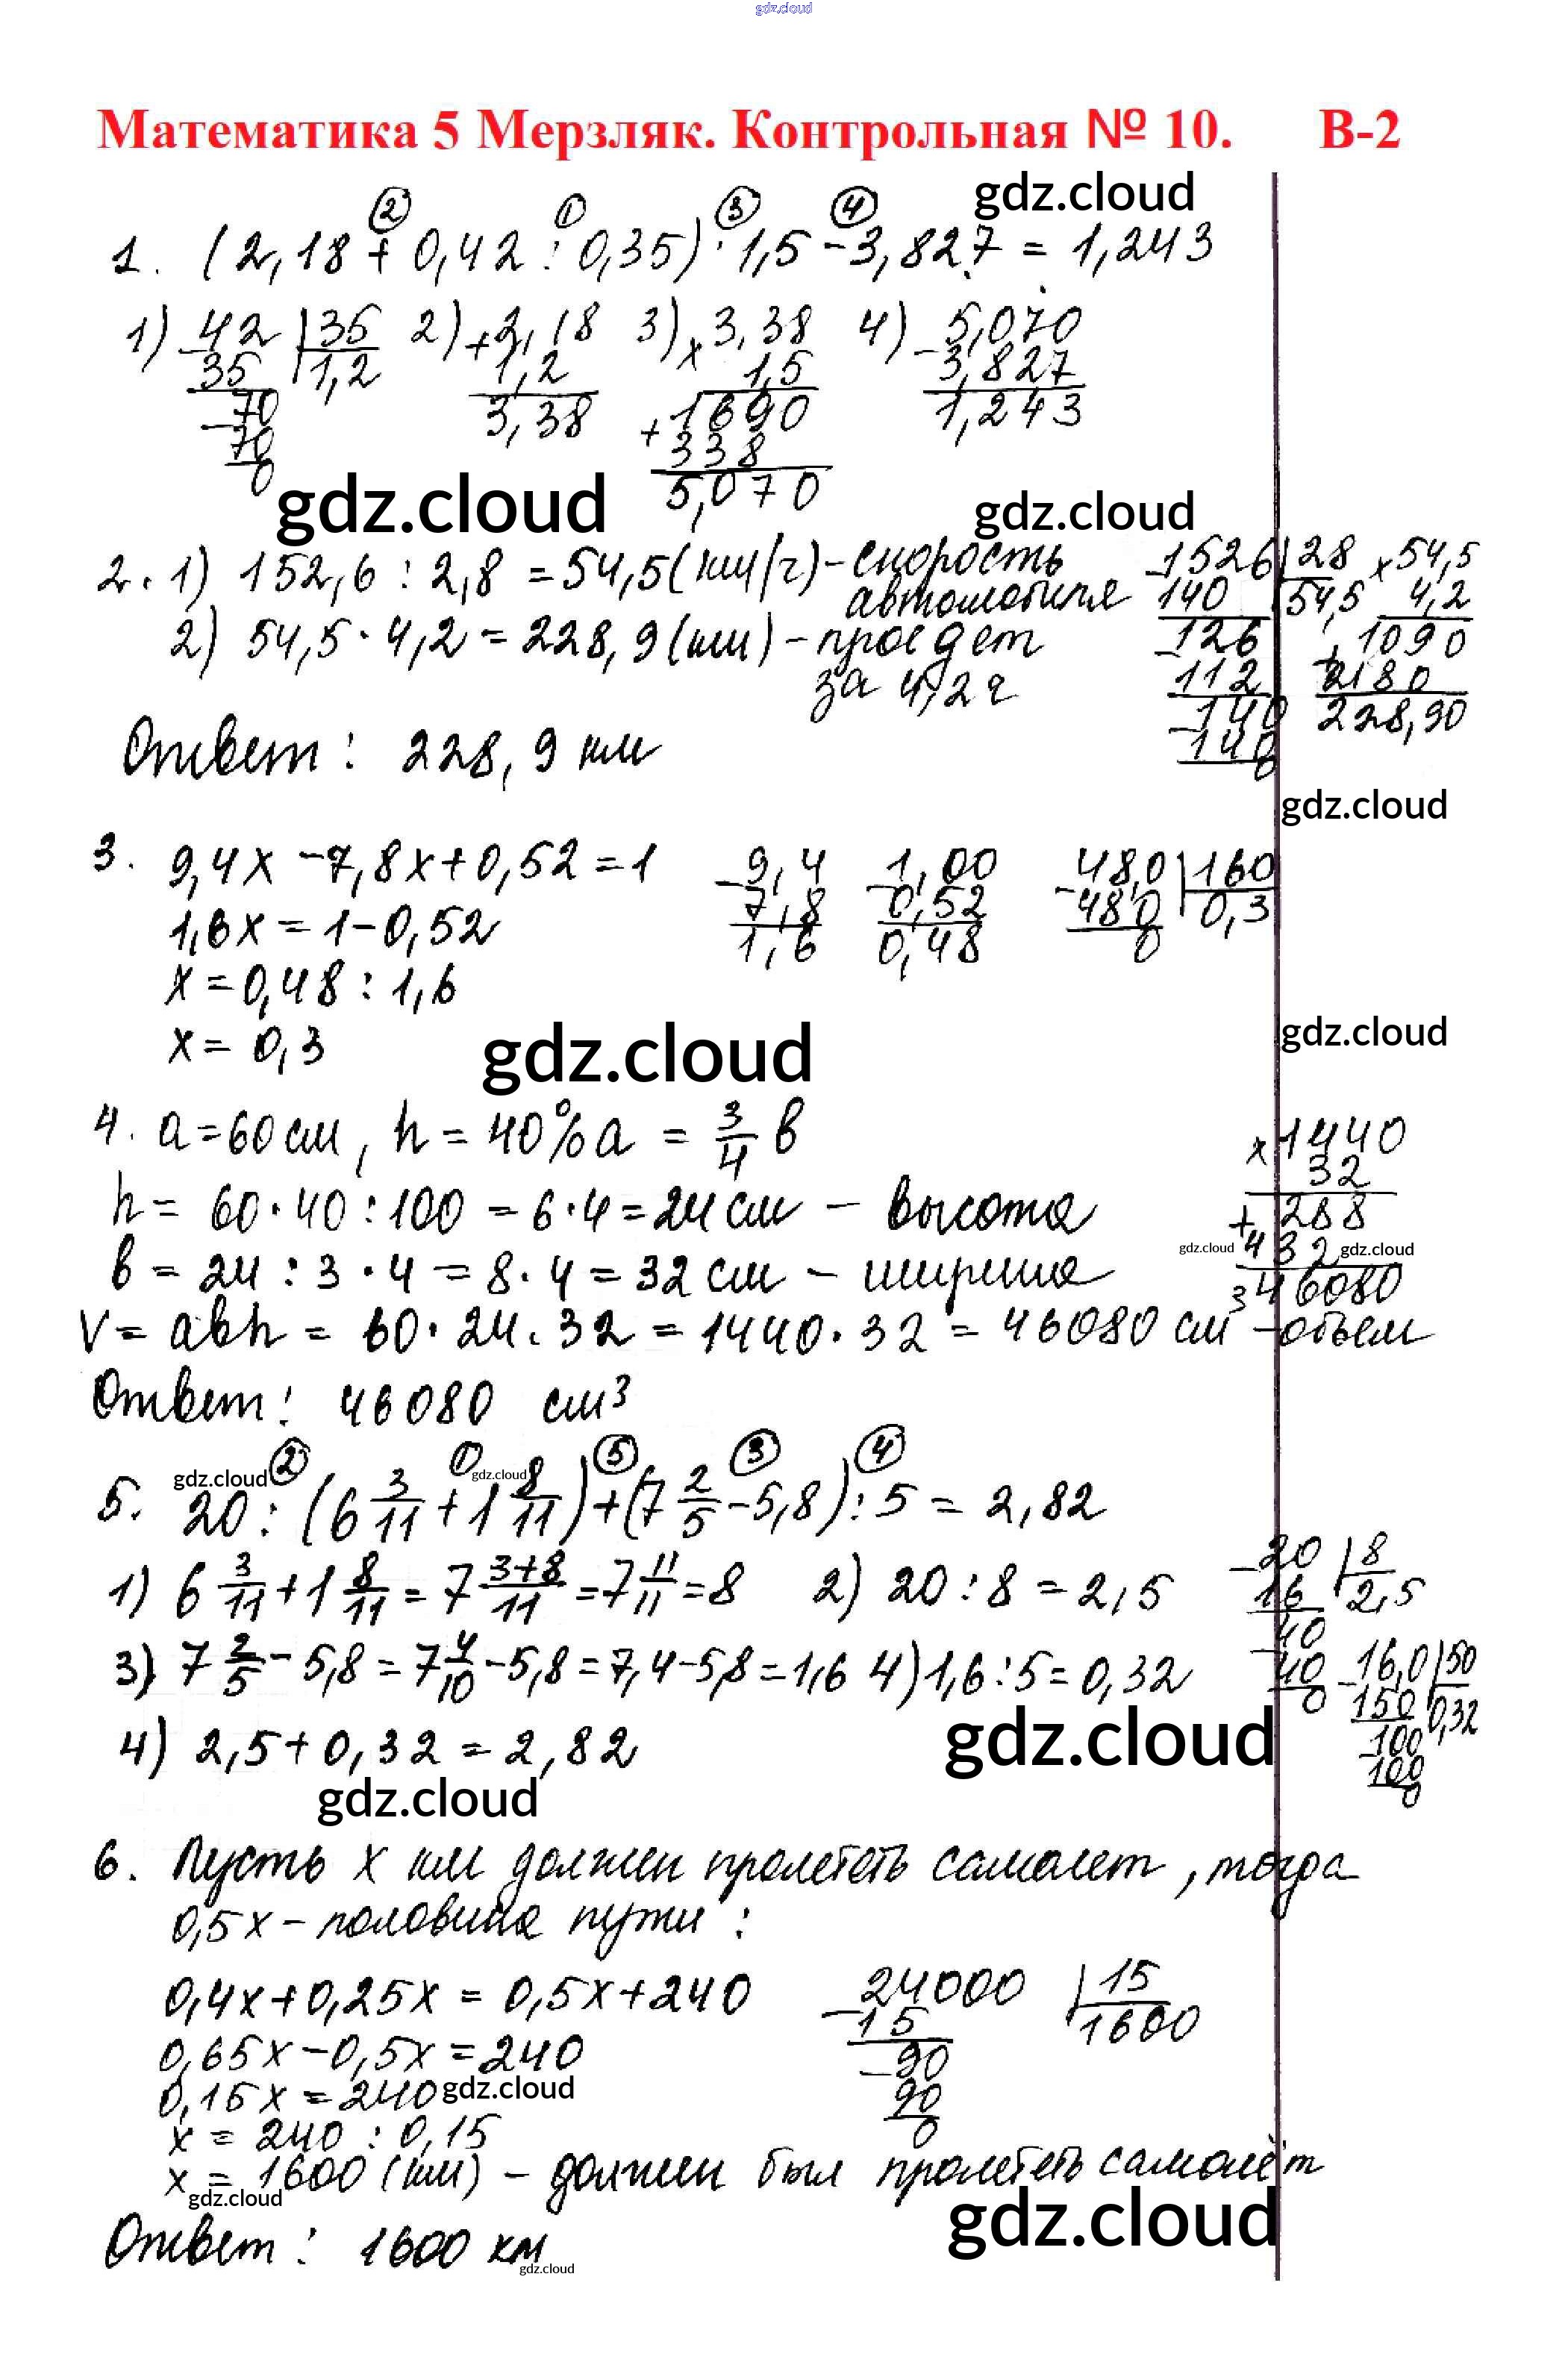 gdz.cloud
Математика 5 Мерзляк. Контрольная № 10. В-2
gdz.cloud
② ① ③ ④
1. (2,18 + 0,42 : 0,35) · 1,5 - 3,827 = 1,243
1) 42 | 35 2) + 2,18 3) × 3,38 4) - 5,070
- 35 1,2 1,2 1,5 3,827
- 70 3,38 + 1690 1,243
70 338
0 5,070
gdz.cloud gdz.cloud
2. 1) 152,6 : 2,8 = 54,5 (км/ч) - скорость
автомобиля
2) 54,5 · 4,2 = 228,9 (км) - проедет
за 4,2 ч
- 1526 | 28 × 54,5
140 54,5 4,2
- 126 + 1090
112 2180
- 140 228,90
140
0
Ответ: 228,9 км
gdz.cloud
3. 9,4х - 7,8х + 0,52 = 1 - 9,4 - 1,00 - 48,0 | 160
7,8 0,52 480 0,3
1,6х = 1 - 0,52 1,6 0,48 0
х = 0,48 : 1,6
х = 0,3
gdz.cloud gdz.cloud
4. а = 60 см, h = 40% а = 3/4 в
h = 60 · 40 : 100 = 6 · 4 = 24 см - высота
в = 24 : 3 · 4 = 8 · 4 = 32 см - ширина
× 1440
32
+ 288
gdz.cloud 432 gdz.cloud
46080
V = авh = 60 · 24 · 32 = 1440 · 32 = 46080 см3 - объем
Ответ: 46080 см3
② ① ⑤ ③ ④
gdz.cloud gdz.cloud
5. 20 : (6 3/11 + 1 8/11) + (7 2/5 - 5,8) : 5 = 2,82
1) 6 3/11 + 1 8/11 = 7 3+8/11 = 7 11/11 = 8 2) 20 : 8 = 2,5
3) 7 2/5 - 5,8 = 7 4/10 - 5,8 = 7,4 - 5,8 = 1,6 4) 1,6 : 5 = 0,32
- 20 | 8
16 2,5
- 40
40 - 16,0 | 50
0 150 0,32
- 100
100
0
gdz.cloud
4) 2,5 + 0,32 = 2,82
gdz.cloud
6. Пусть х км должен пролететь самолет, тогда
0,5х - половина пути:
0,4х + 0,25х = 0,5х + 240 - 24000 | 15
15 1600
0,65х - 0,5х = 240 - 90
0,15х = 240 90
gdz.cloud
х = 240 : 0,15 0
х = 1600 (км) - должен был пролететь самолёт
gdz.cloud gdz.cloud
Ответ: 1600 км
gdz.cloud